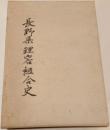 長野県理容組合史